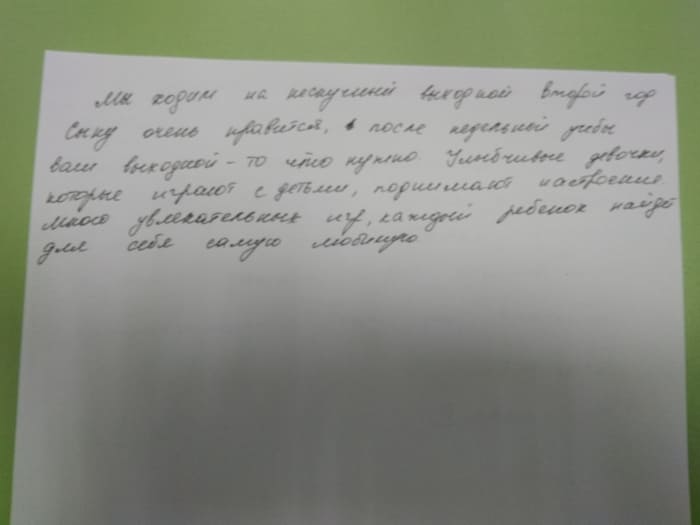 Мы ходим на нескучный выходной второй год
Сыну очень нравится, после недельной учебы
ваш выходной - то что нужно. Улыбчивые девочки,
которые играют с детьми, поднимают настроение.
Много увлекательных игр, каждый ребенок найдет
для себя самую любимую